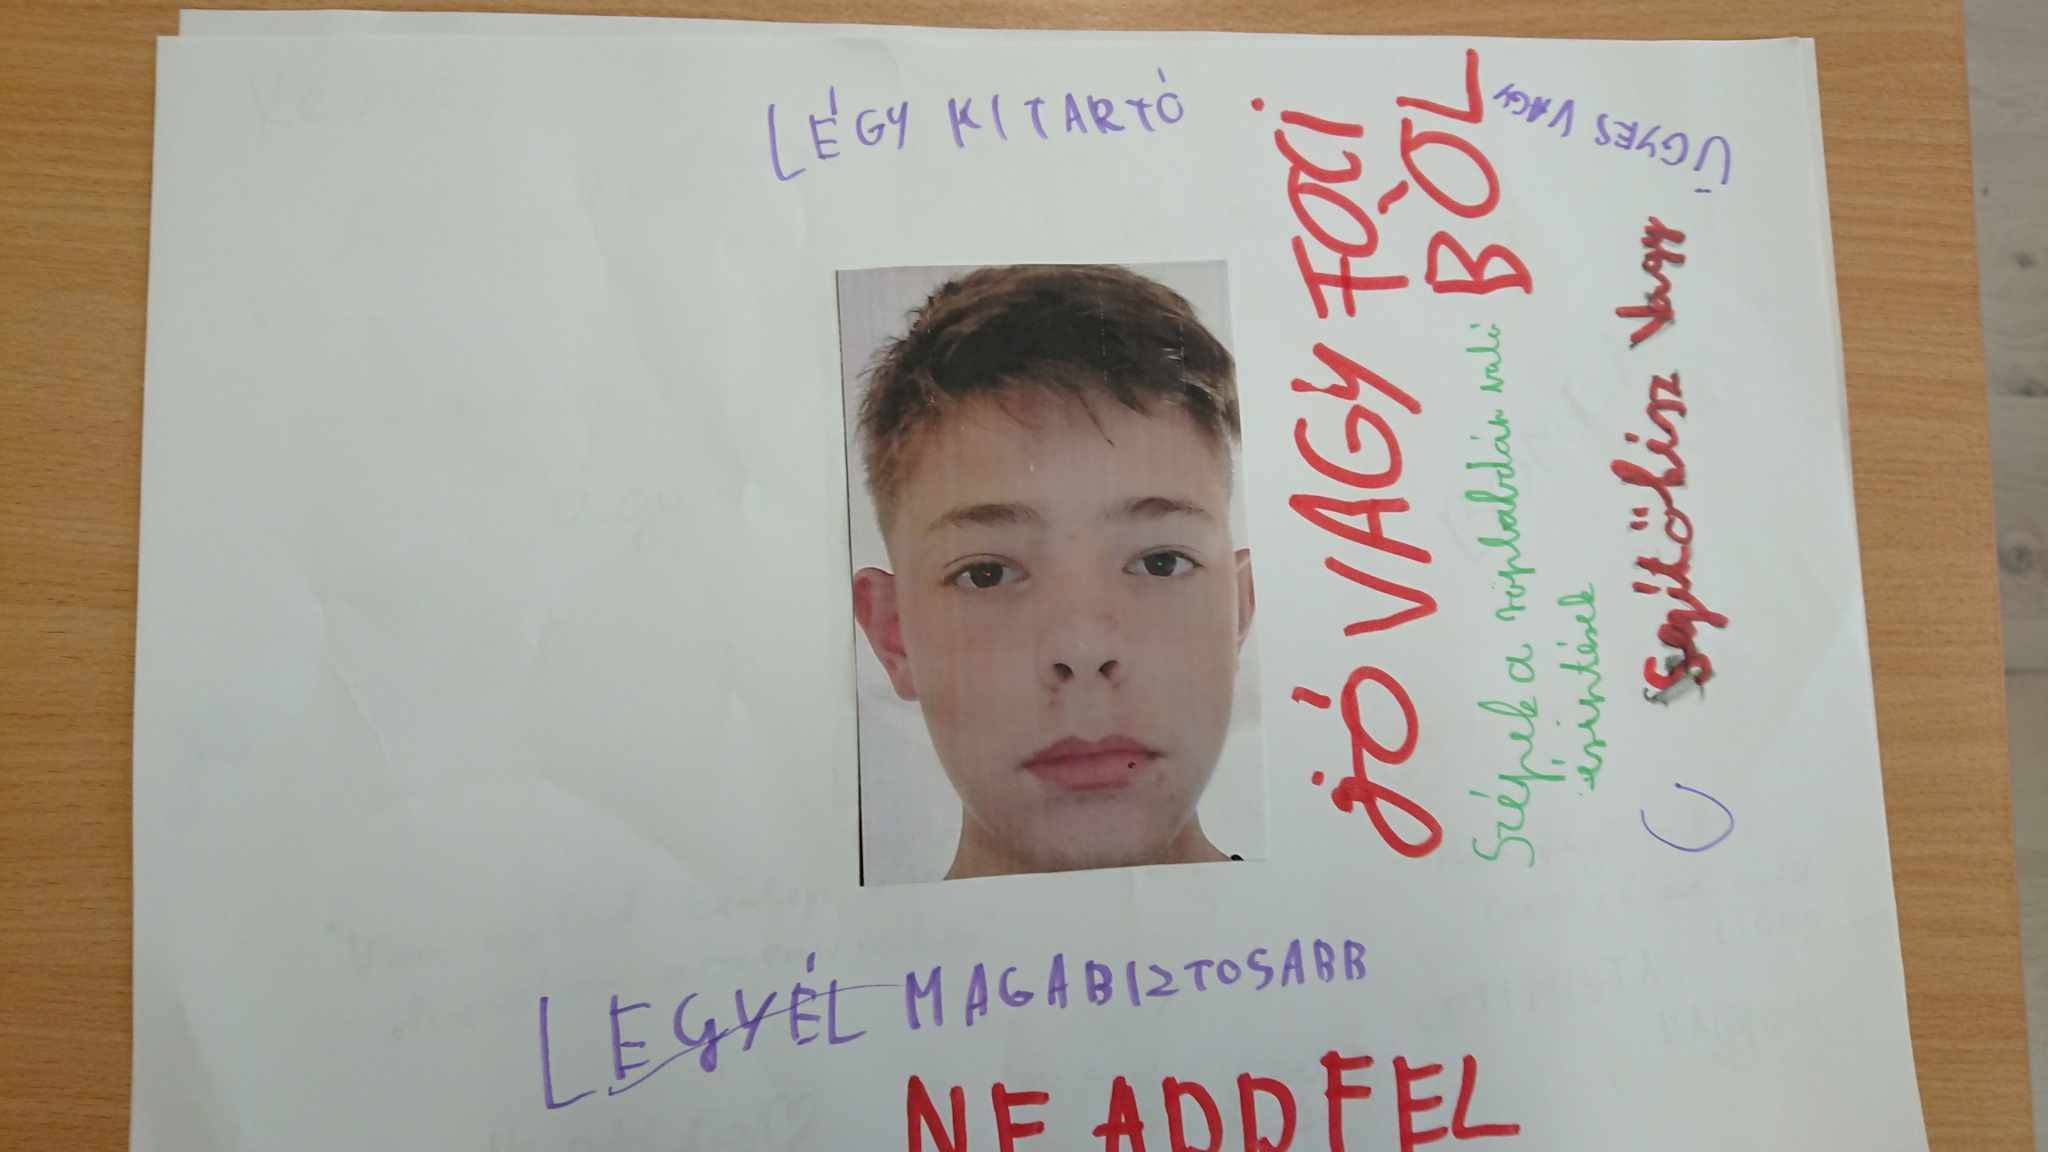 LÉGY KITARTÓ
ÜGYES VAGY
JÓ VAGY FOCI
BÓL
Szépek a röplabdán való
érintések
Segítőkész Vagy
LEGYÉL MAGABIZTOSABB
NE ADD FEL